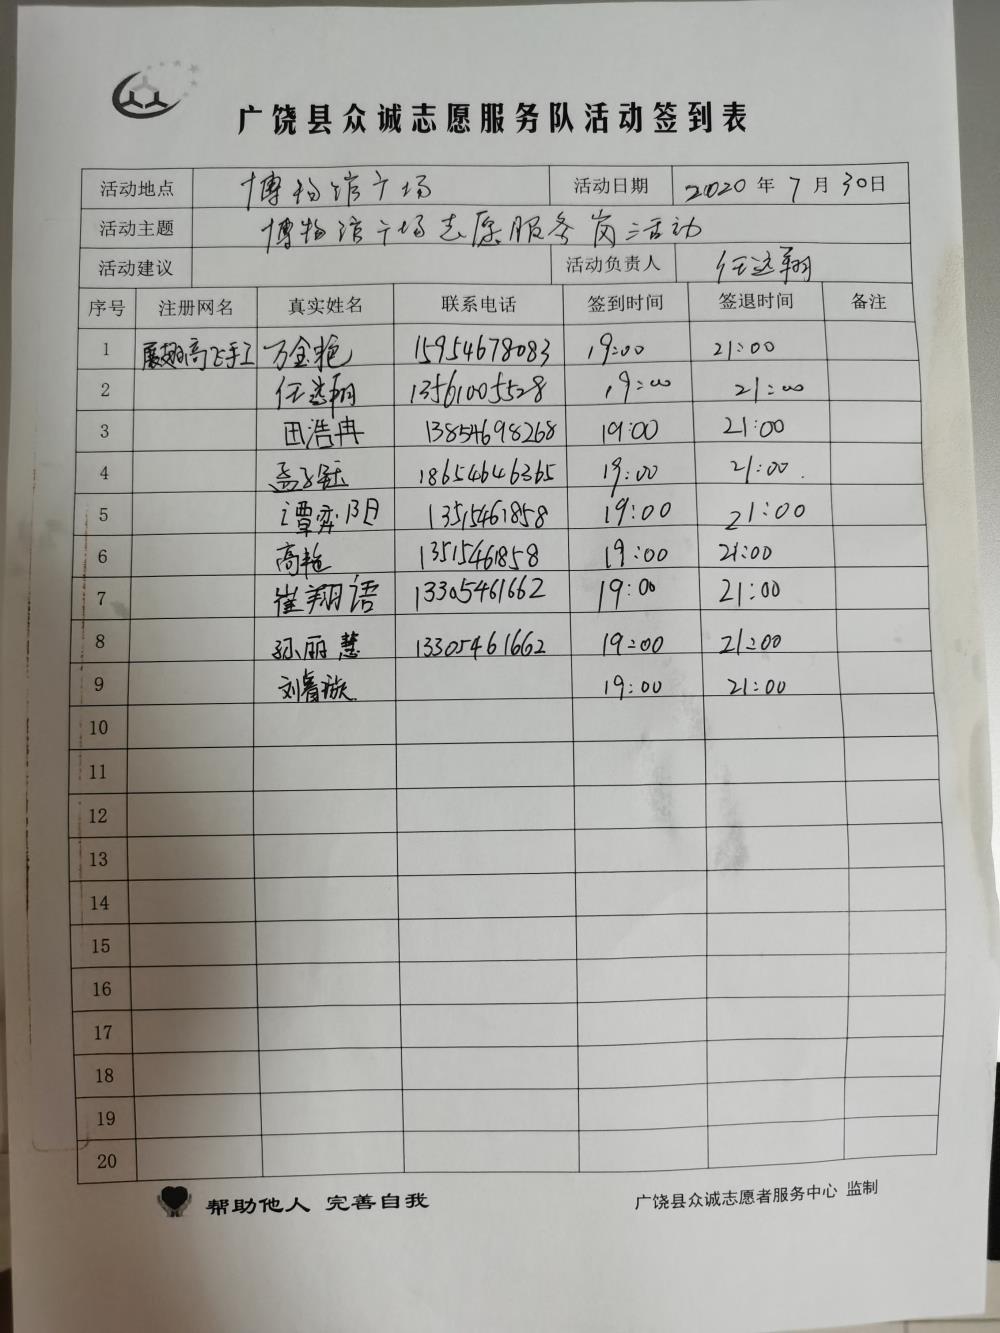 广饶县众诚志愿服务队活动签到表
活动地点 博物馆广场 活动日期 2020年7月30日
活动主题 博物馆广场志愿服务岗活动
活动建议 活动负责人 任达翔
序号 注册网名 真实姓名 联系电话 签到时间 签退时间 备注
1 展翅高飞手工 万金艳 15954678083 19:00 21:00
2 任达翔 13561005528 19:00 21:00
3 田浩冉 13854698268 19:00 21:00
4 孟子钰 18654646365 19:00 21:00
5 谭弈阳 13515461858 19:00 21:00
6 高艳 13515461858 19:00 21:00
7 崔翔语 13305461662 19:00 21:00
8 孙丽慧 13305461662 19:00 21:00
9 刘睿璇 19:00 21:00
10
11
12
13
14
15
16
17
18
19
20
帮助他人 完善自我 广饶县众诚志愿者服务中心 监制